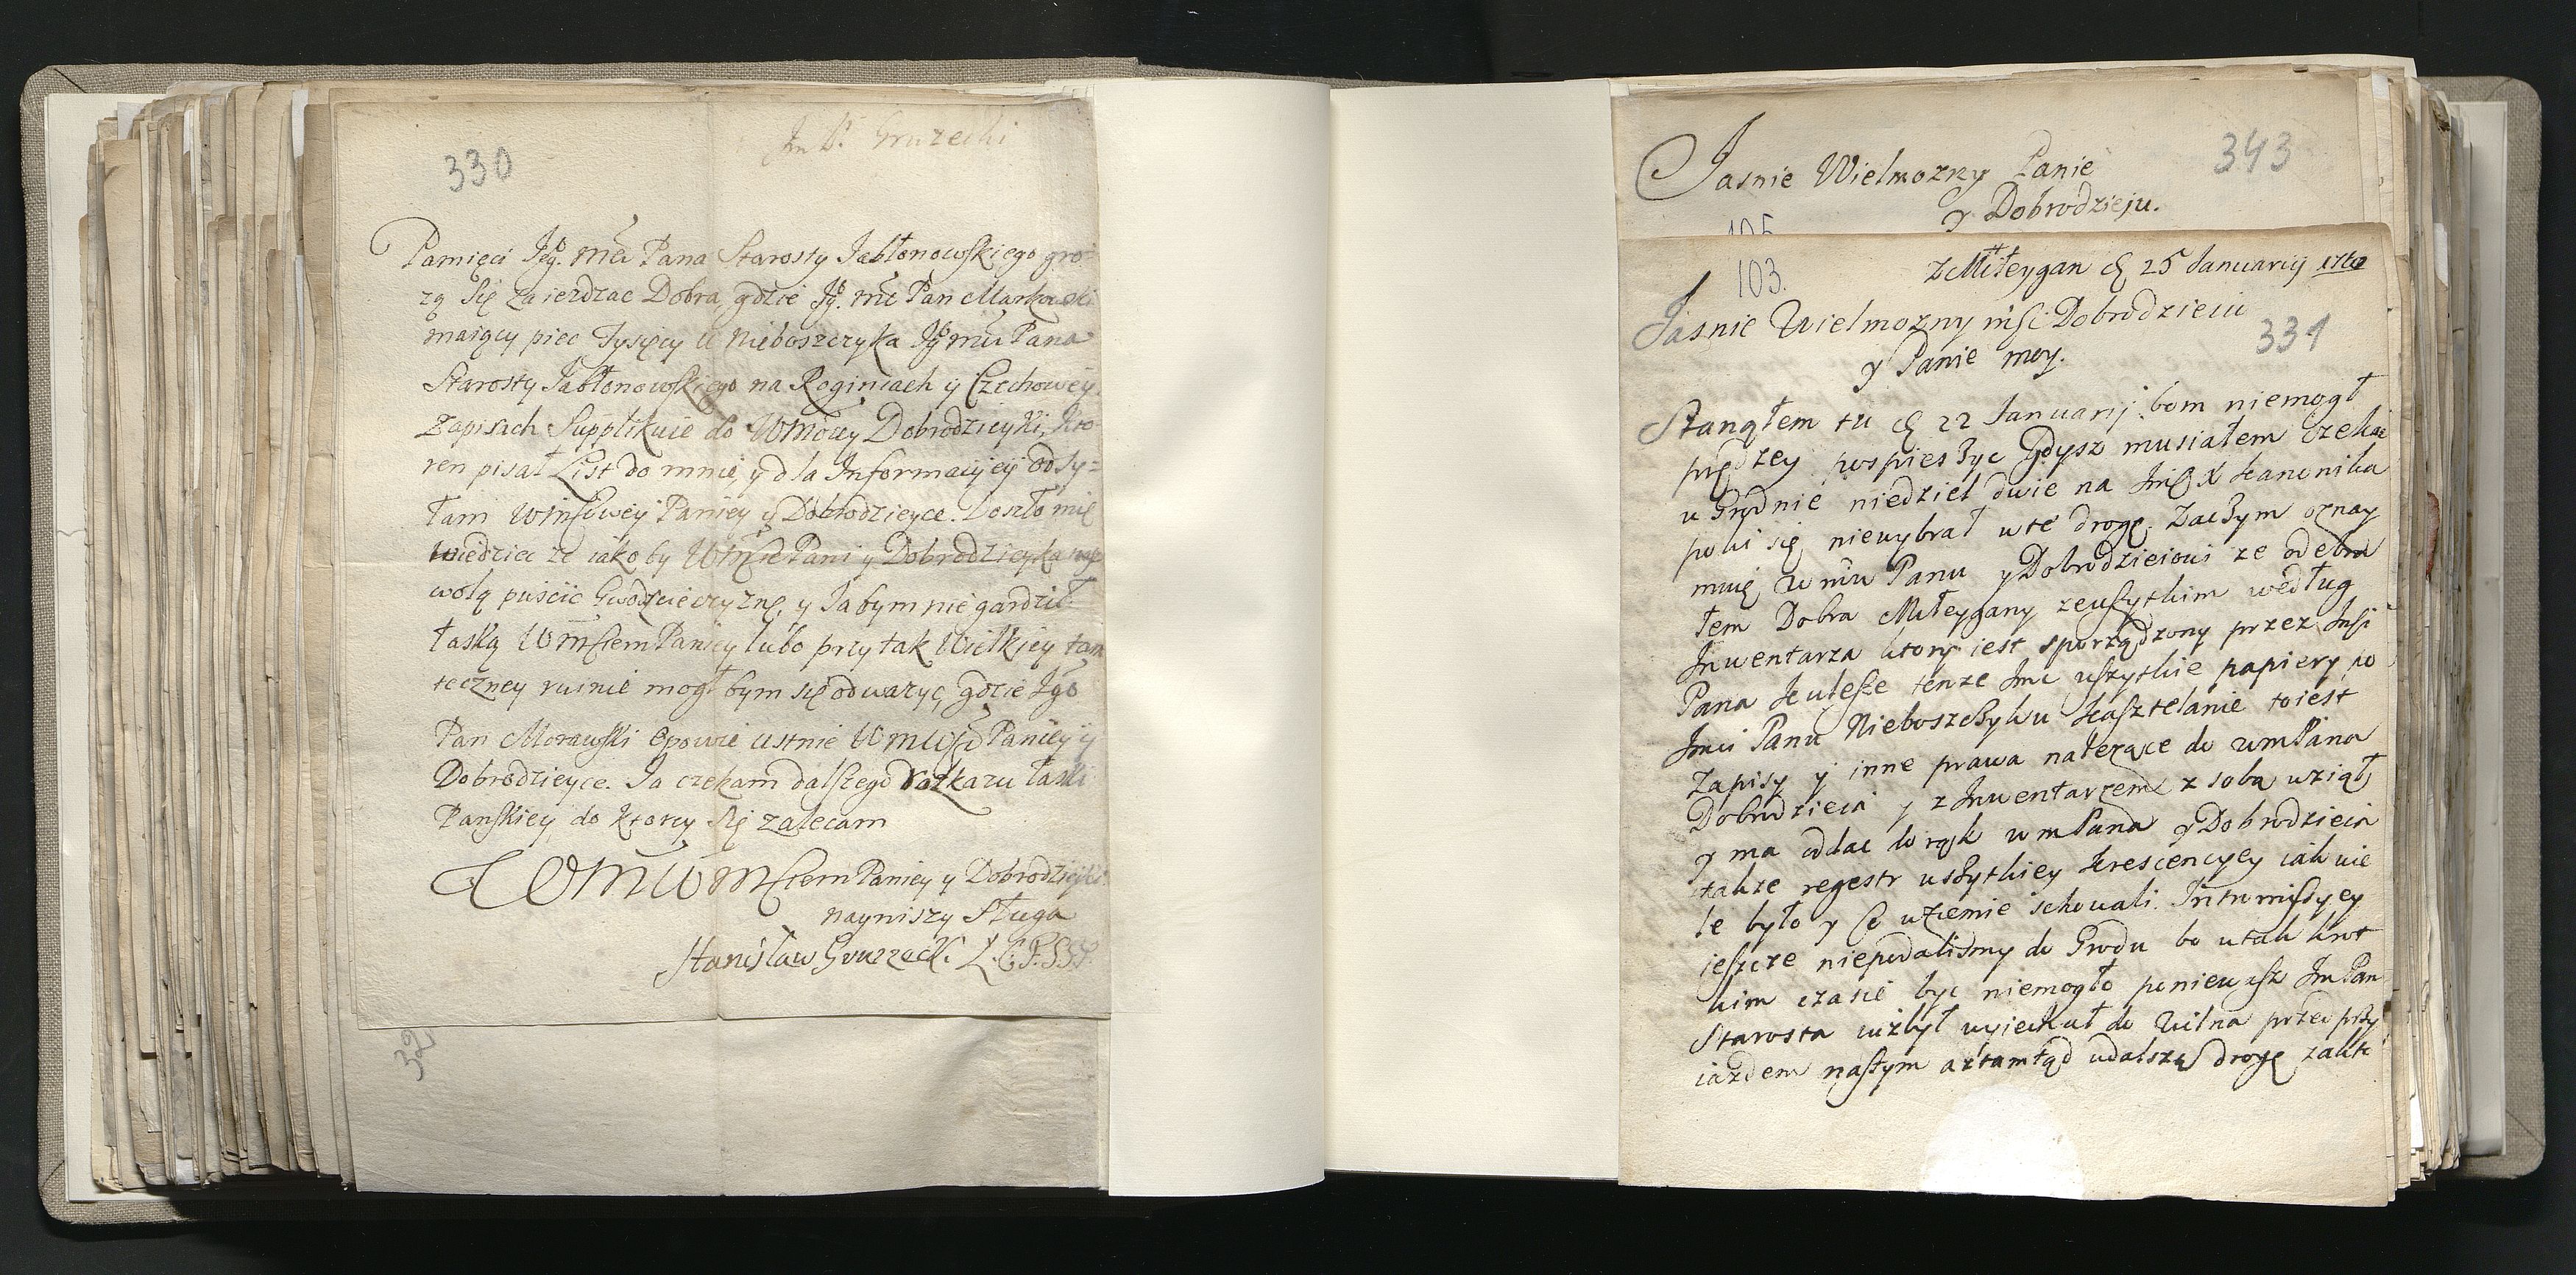 330
Pamięci Jeg. mci Pana Starosty Jabłonowskiego gro-
zą się zaiezdzac Dobra, gdzie Jg. mc Pan Markowski
maiący piec Tysięcy u Nieboszczyka Jg mci Pana
Starosty Jabłonowskiego na Roginiach y Czechowey
Zapisach Supplikuie do Dobrodzieyki, kto-
ren pisał List do mnie, y dla Informacyey odsy-
łam Paniey y Dobrodzieyce. Doszło mię
wiedziec ze iakoby Pani y Dobrodzieyka
wolą puscic y Ja bym nie gardził
łaską Paniey lubo przy tak Wielkiey
teczney ruinie mogł bym się odwazyc, gdzie Jgo
Pan Morawski opowie ustnie Paniey y
Dobrodzieyce. Ja czekam dalszego rozkazu łaski
Panskiey, do ktorey się zalecam
Paniey y Dobrodzieyki
nayniszy Sługa
Stanisław
32
343
Jasnie Wielmozny Panie
y Dobrodzieju.
105
103.
z Miłeygan 25 Januarij 1740
Jasnie Wielmozny mści Dobrodzieiu
331
y Panie moy.
Stanąłem tu 22 Januarij bom niemogł
prędzey pospieszyc Gdysz musiałem czekac
u Grodnie niedziel dwie na Kanonika
poki się niewybrał w te drogę. Zaczym oznay
muię Panu y Dobrodzieiowi ze odebra
łem Dobra Miłeygany ze wszytkim według
Inwentarza ktory iest sporządzony przez
Pana tenze Jmc wszytkie papiery po
Jmci Panu Nieboszczyku Kasztelanie toiest
Zapisy y inne prawa nalezące do wmPana
Dobrodzieia y z Inwentarzem z sobą wziął
y ma oddac do rąk wmPana y Dobrodzieia
takze regestr wszytkiey Krescencyey iak wie
le było y co w ziemie schowali. Intromissyey
ieszcze niepodalismy do Grodu bo w tak krot
kim czasie byc niemogło poniewasz Jm Pan
Starosta iuz był wyiechał do Wilna przed przy
iazdem naszym az tamtąd w dalszą drogę